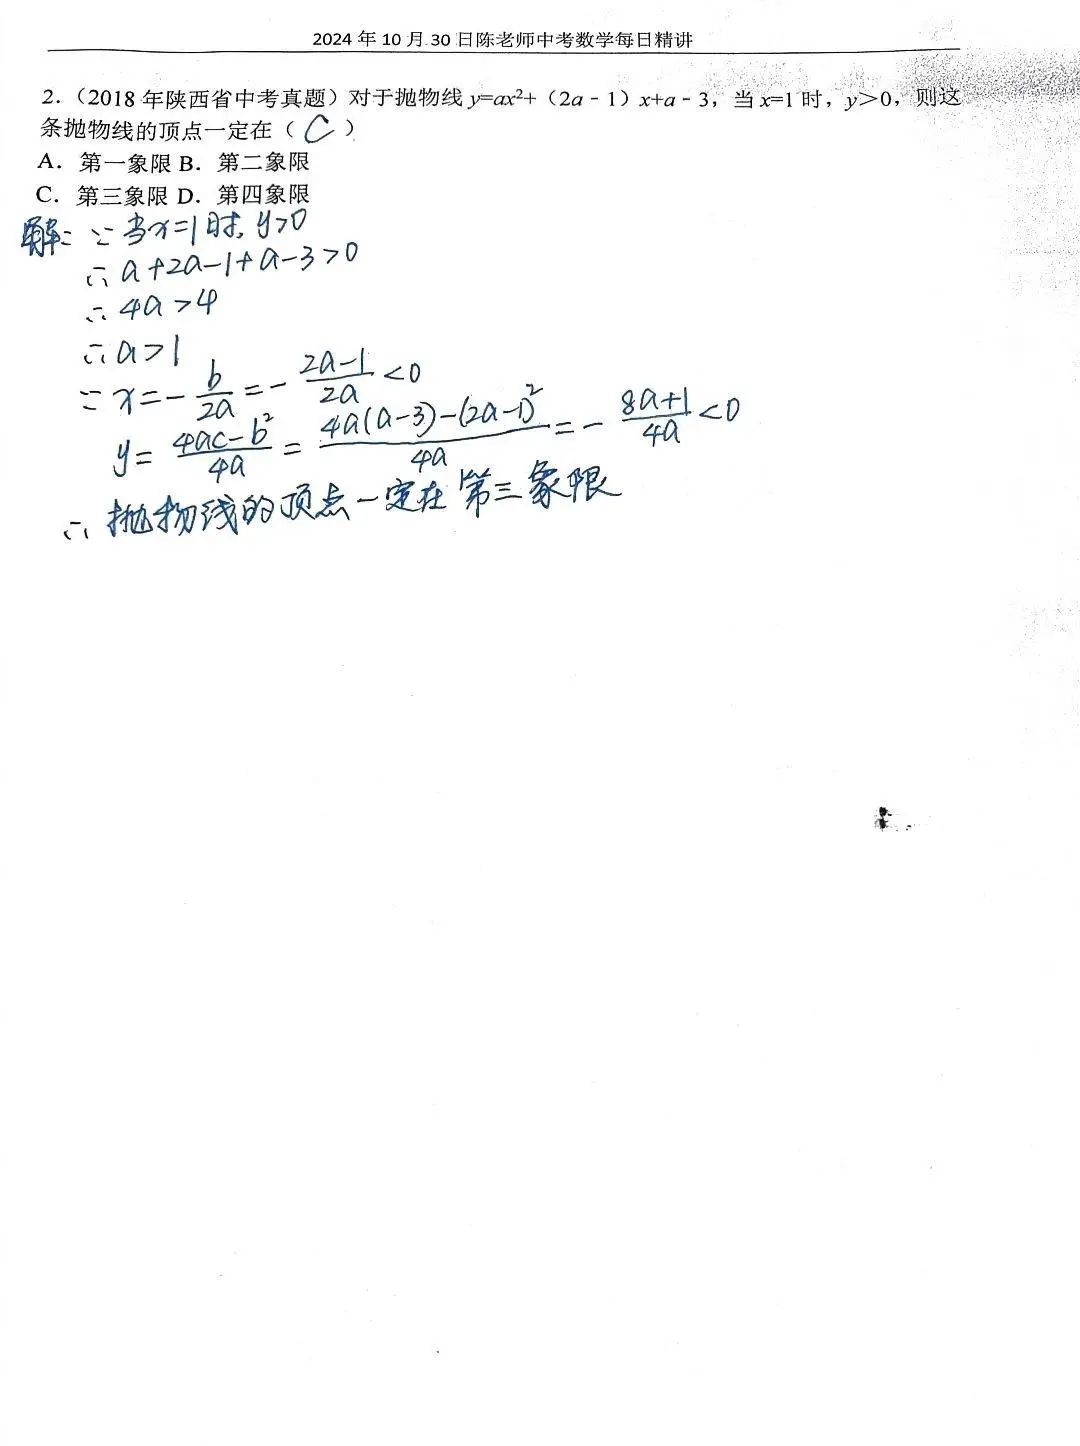 2024 年 10 月 30 日陈老师中考数学每日精讲
2.（2018 年陕西省中考真题）对于抛物线 y=ax²+（2a﹣1）x+a﹣3，当 x=1 时，y＞0，则这
条抛物线的顶点一定在（ C ）
A．第一象限 B．第二象限
C．第三象限 D．第四象限
解: ∵ 当x=1时, y>0
∴ a+2a-1+a-3>0
∴ 4a>4
∴ a>1
∵ x=-b/2a=-(2a-1)/2a<0
y=(4ac-b²)/4a=(4a(a-3)-(2a-1)²)/4a=-(8a+1)/4a<0
∴ 抛物线的顶点一定在第三象限